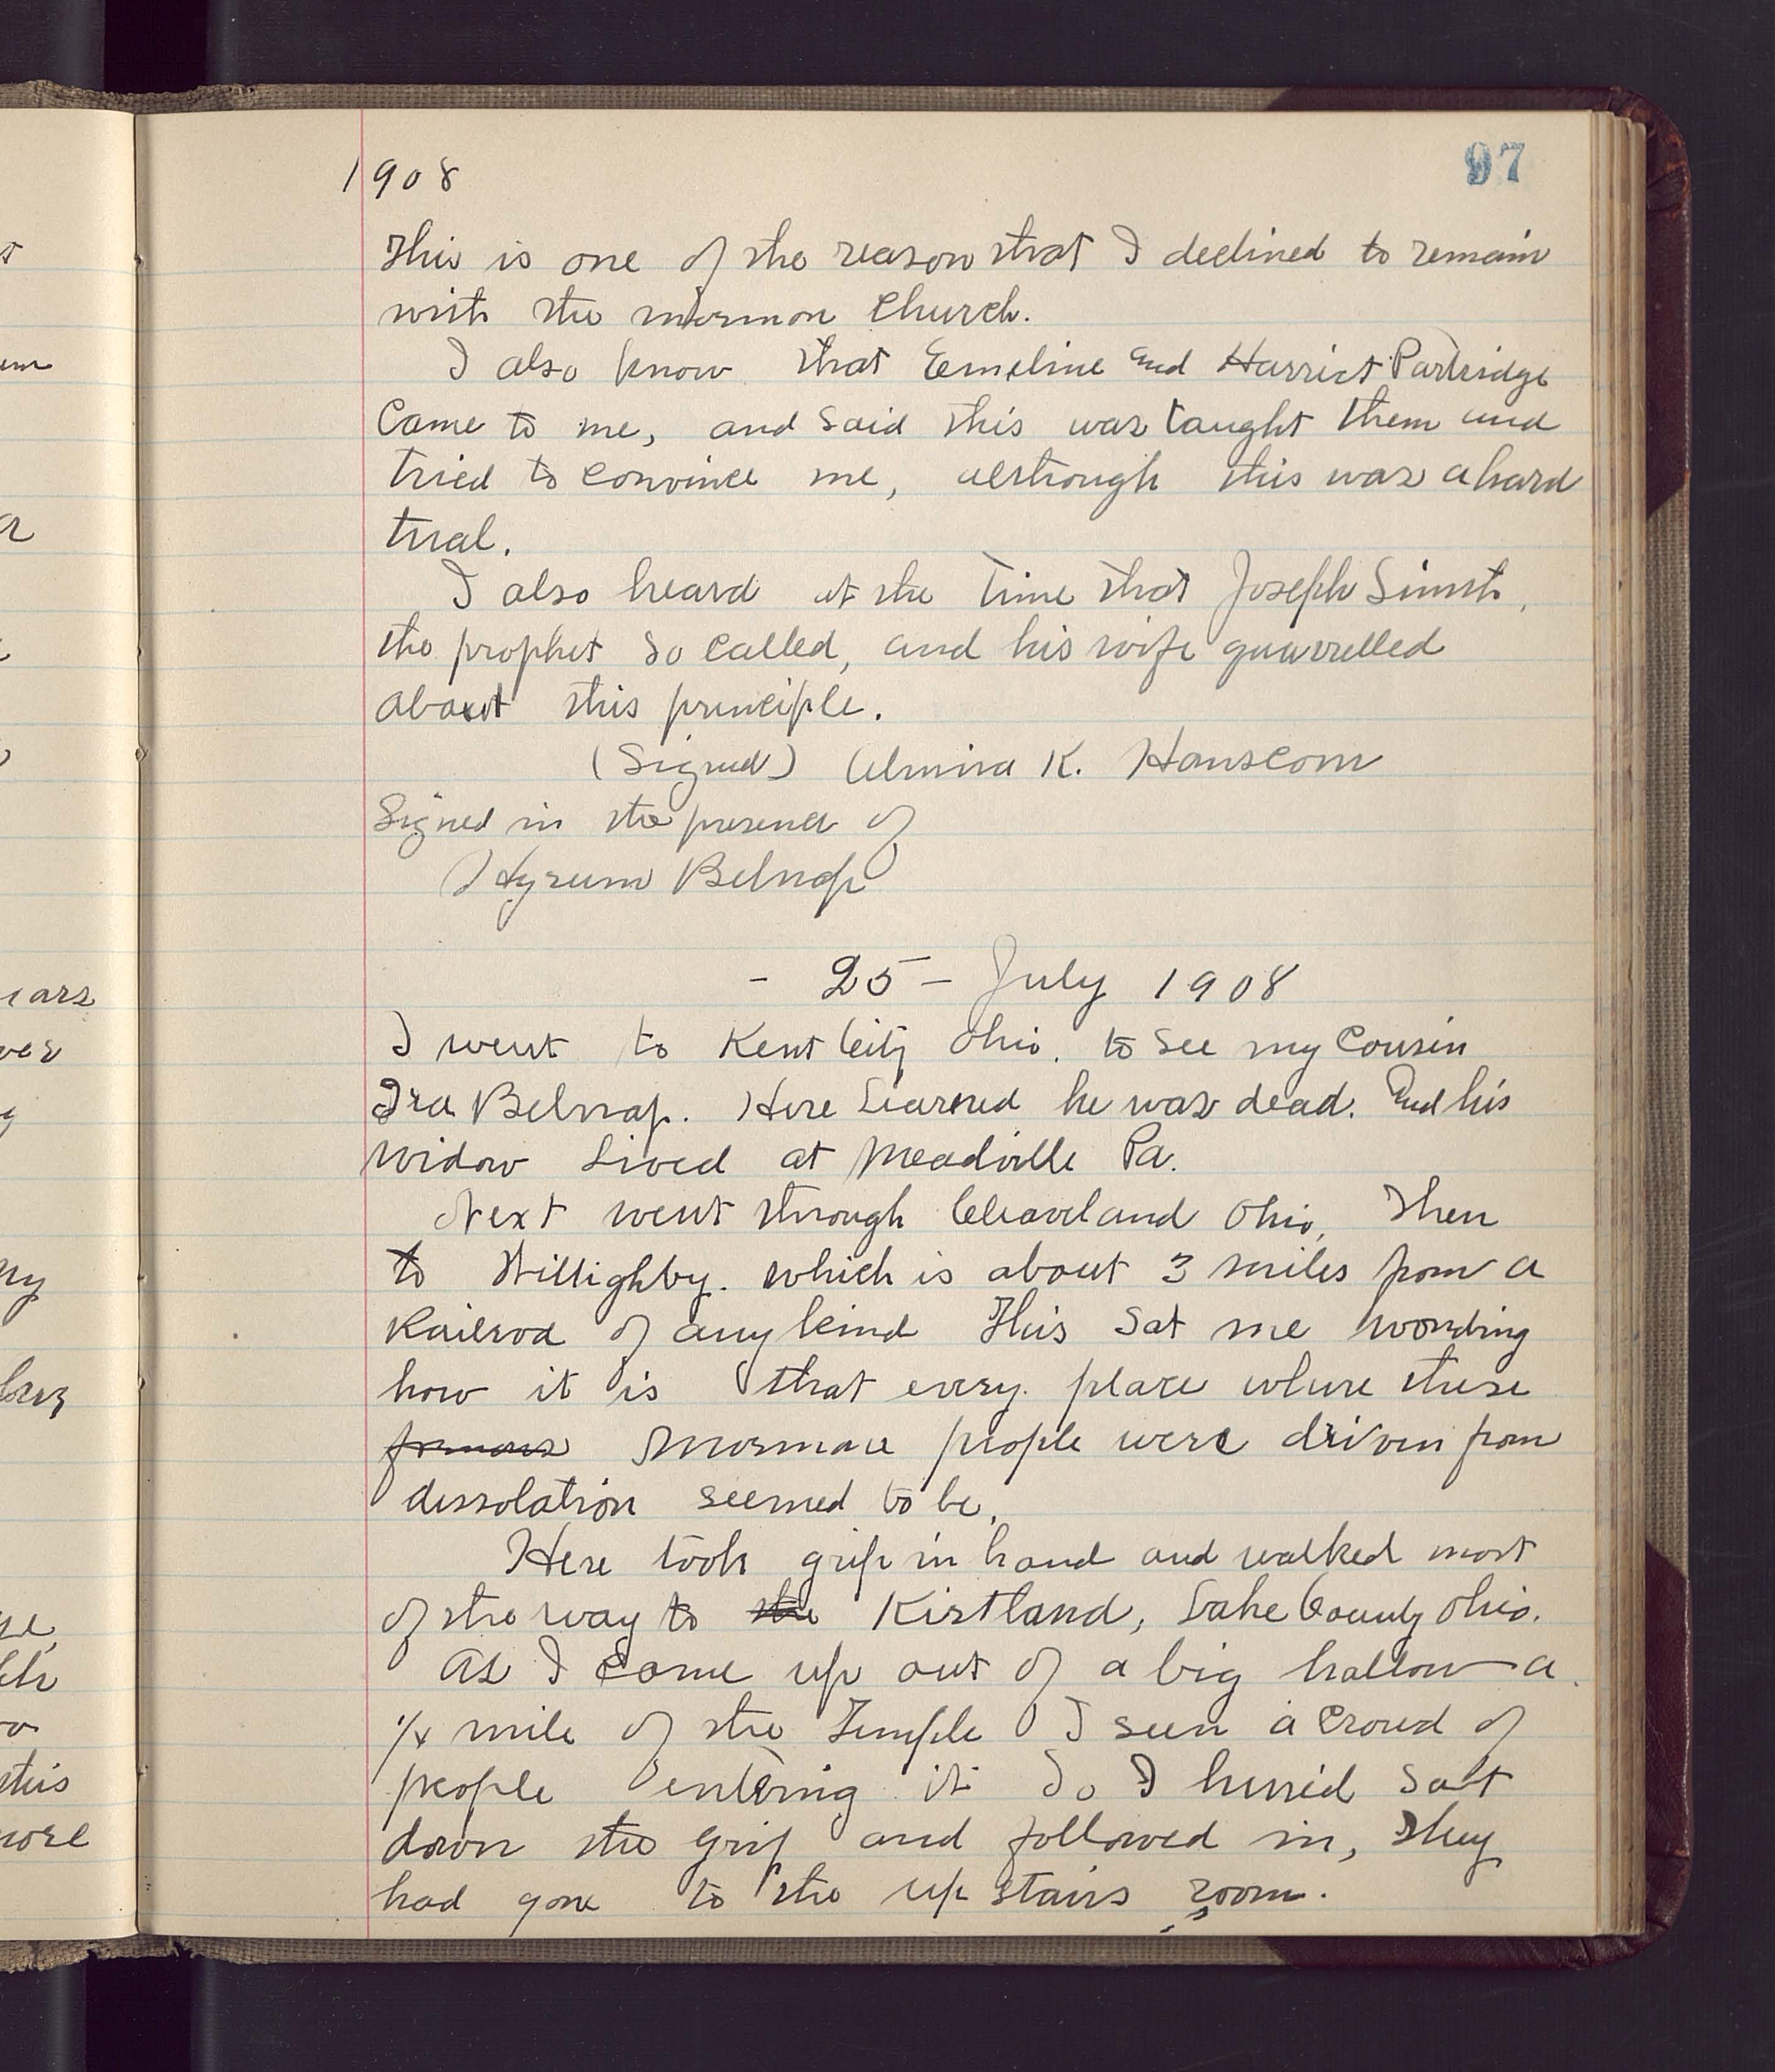 1908
97
This is one of the reason that I declined to remain
with the mormon Church.
I also know that Eemeline and Harriet Partridge
Came to me, and said this was taught them and
tried to convince me, although this was a hard
trial.
I also heard at the time that Joseph Simth,
the prophet so called, and his wife quarrelled
about this principle.
(Signed) Almira K. Hanscom
Signed in the presence of
Hyrum Belnap
- 25 - July 1908
I went to Kent City Ohio. to see my Cousin
Ira Belnap. Here Learned he was dead. And his
widow Lived at Meadville Pa.
Next went through Cleaveland Ohio, Then
to Willighby. which is about 3 miles from a
Railrod of any kind This Sat me wonding
how it is that every place where these
famous Mormon people were driven from
dessolation seemed to be.
Here took grip in hand and walked most
of the way to the Kirtland, Lake County Ohio.
As I come up out of a big hallow a
1/4 mile of the Temple I seen a Croud of
people entering it So I hurrid Sat
down the grip and followed in, They
had gone to the up stairs room.
ears
ver
ny
this
more